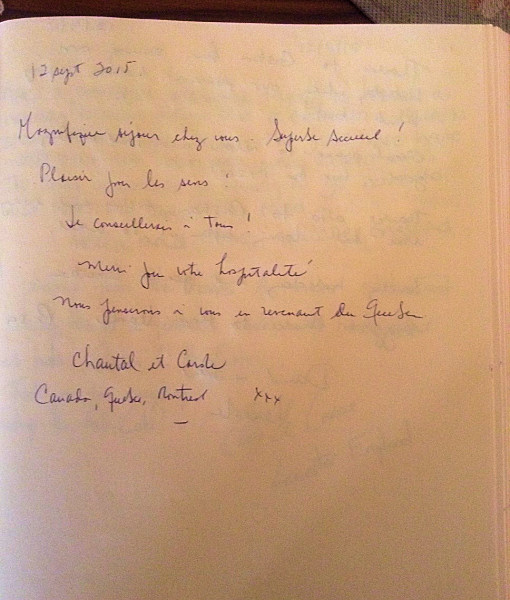 12 sept 2015
Magnifique séjour chez vous. Superbe accueil !
Plaisir pour les sens !
Je conseillerais à tous !
Merci pour votre hospitalité
Nous penserons à vous en revenant du Québec
Chantal et Carole
Canada, Québec, Montreal xxx